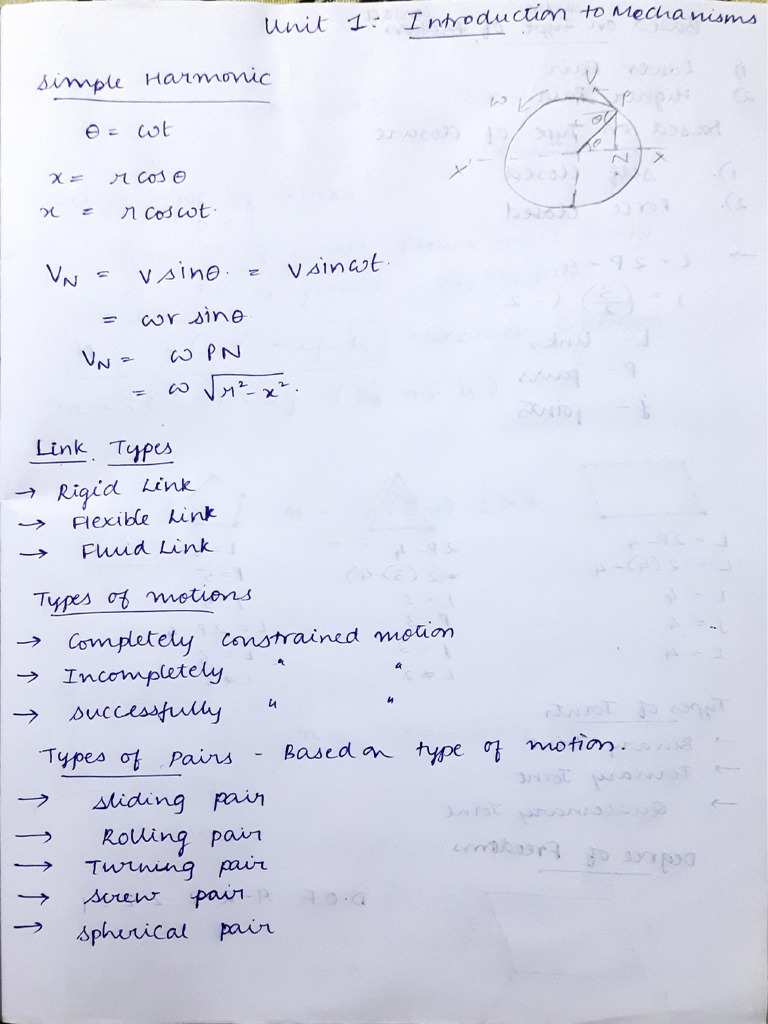 Unit 1: Introduction to Mechanisms
Simple Harmonic
θ = ωt
x = r cos θ
x = r cos ωt.
V_N = V sin θ. = V sin ωt.
= ωr sin θ
V_N = ω PN
= ω √r² - x².
V
P
ω
θ
θ
X'
N
X
Link Types
→ Rigid Link
→ Flexible Link
→ Fluid Link
Types of motions
→ Completely constrained motion
→ Incompletely " "
→ Successfully " "
Types of Pairs - Based on type of motion.
→ Sliding pair
→ Rolling pair
→ Turning pair
→ Screw pair
→ Spherical pair